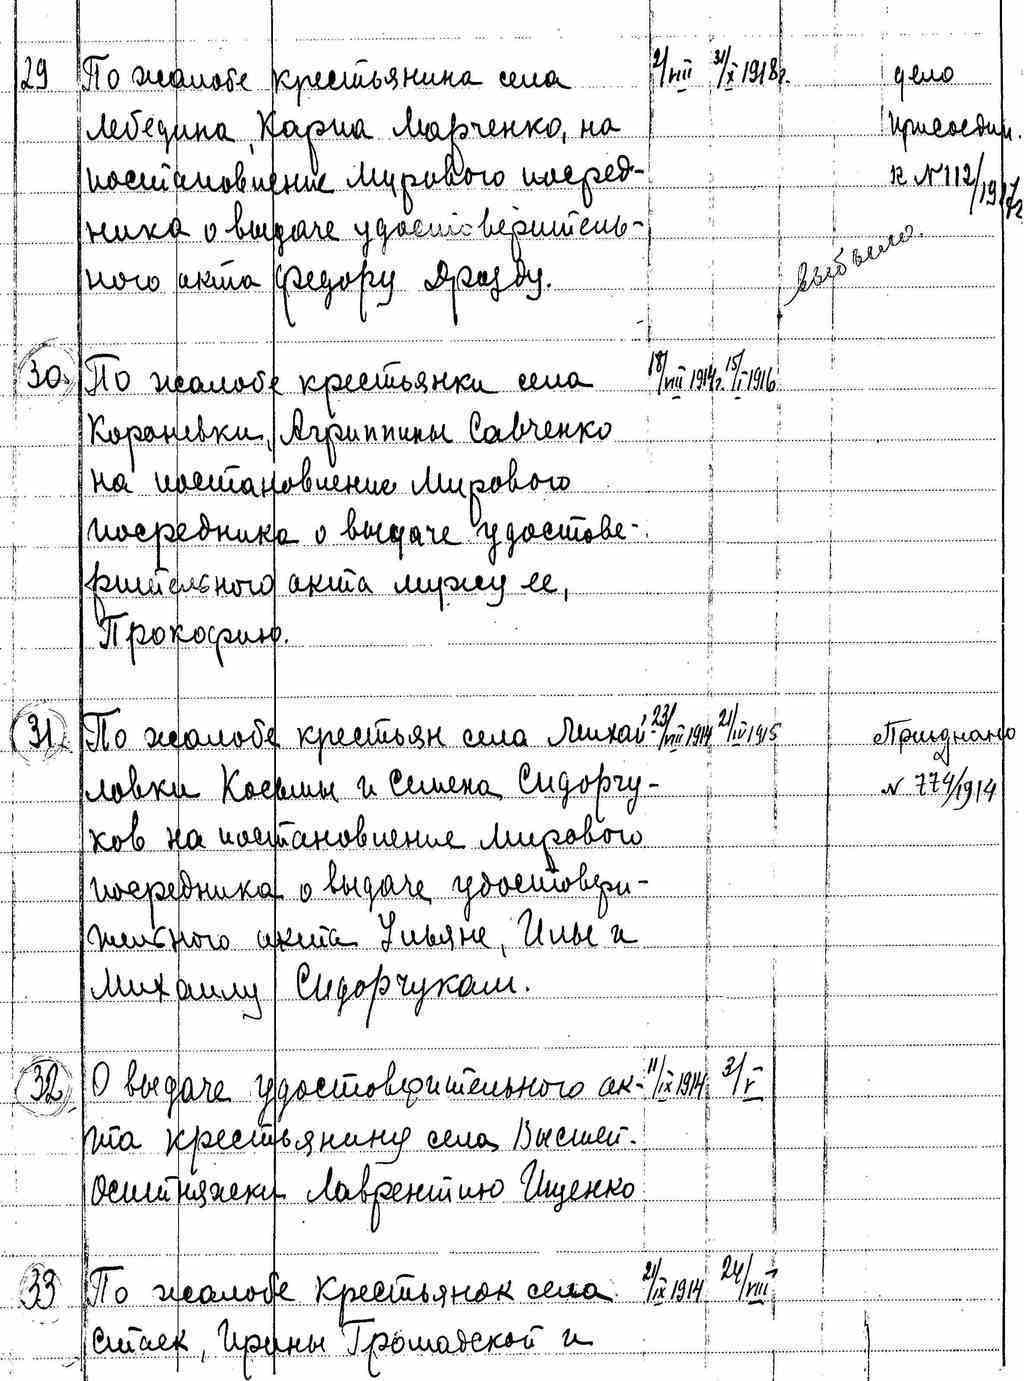 29 По жалобе крестьянина села 2/VIII 31/X 1918г. дело
Лебедина, Карпа Марченко, на присоедин.
постановление Мирового посред- к № 112/1917г
ника о выдаче удостоверитель- выбыло.
ного акта Федору Дрозду.
30. По жалобе крестьянки села 18/VIII 1914г. 15/I 1916
Короневки, Агриппины Савченко
на постановление Мирового
посредника о выдаче удостове-
рительного акта мужу ее,
Прокофию.
31. По жалобе крестьян села Михай- 23/VIII 1914 21/IV 1915 Приєднано
ловки Косьмы и Семена Сидорчу- № 774/1914
ков на постановление Мирового
посредника о выдаче удостовери-
тельного акта Ульяне, Илье и
Михаилу Сидорчукам.
32. О выдаче удостоверительного ак- 11/IX 1914 3/V
та крестьянину села Высшей-
Оситняжки Лаврентию Ищенко
33 По жалобе Крестьянок села 21/IX 1914 24/VIII
Ставк, Ирины Громадской и